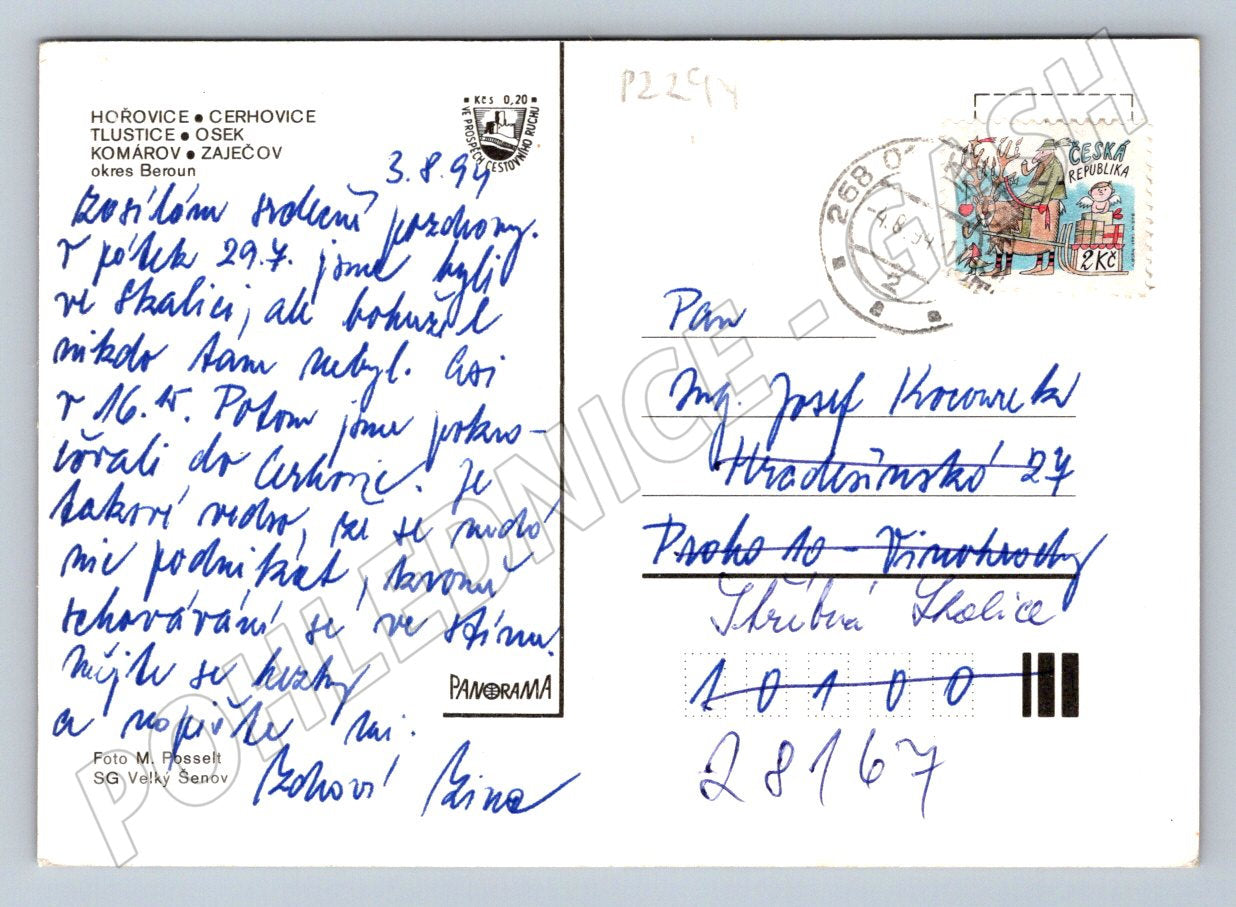 HOŘOVICE • CERHOVICE
TLUSTICE • OSEK
KOMÁROV • ZAJEČOV
okres Beroun
Kčs 0,20
VE PROSPĚCH CESTOVNÍHO RUCHU
3.8.94
Zasílám srdečné pozdravy.
V pátek 29.7. jsme byli
ve Skalici, ale bohužel
nikdo tam nebyl. Asi
v 16. Potom jsme pokra-
čovali do Cerhovic. Je
takové vedro, že se nedá
nic podnikat, kromě
schovávání se ve stínu.
Mějte se hezky
a napište mi.
Zdraví Zina
PANORAMA
Foto M. Posselt
SG Velký Šenov
PZ294
268 0
4.8.94
ČESKÁ
REPUBLIKA
2 Kč
Pan
Ing. Josef Kocourek
Hradešínská 27
Praha 10 - Vinohrady
Stříbrná Skalice
10100
28167
POHLEDNICE - GASH